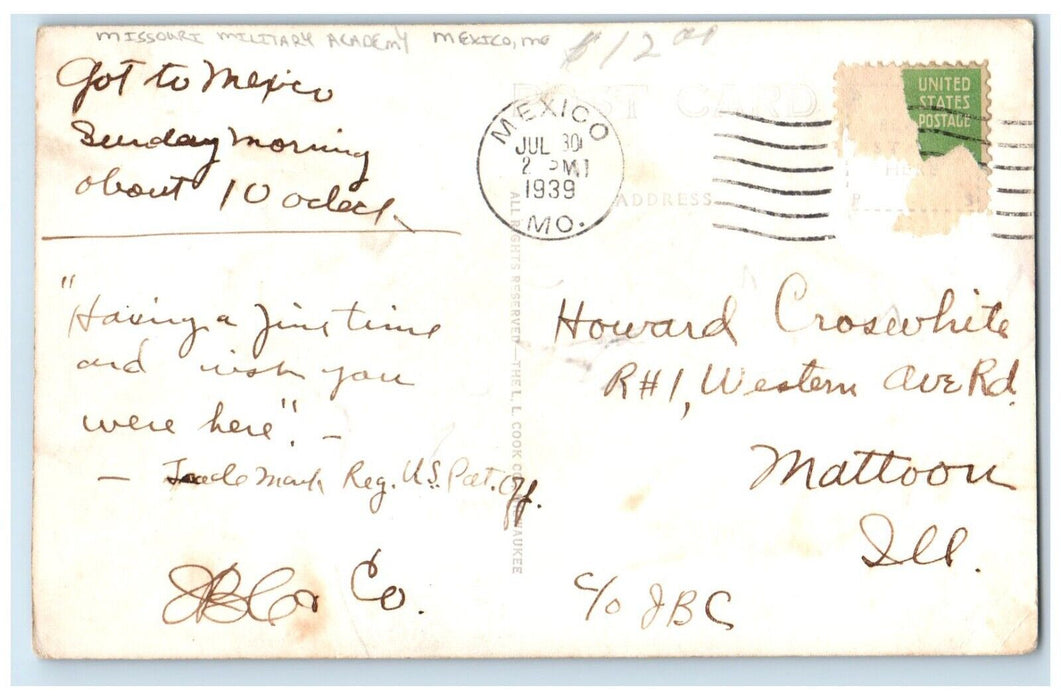 MISSOURI MILITARY ACADEMY MEXICO, MO
$12 00
Got to Mexico
Sunday morning
about 10 oclock.
"Having a fine time
and wish you
were here". -
- Trade Mark Reg. U.S. Pat. Off.
Co.
POST CARD
ADDRESS
MEXICO
JUL 30
2 PM
1939
MO.
UNITED
STATES
POSTAGE
HERE
ALL RIGHTS RESERVED—THE L. L. COOK CO., MILWAUKEE
Howard Crosewhite
R#1, Western Ave Rd.
Mattoon
Ill.
c/o JBC